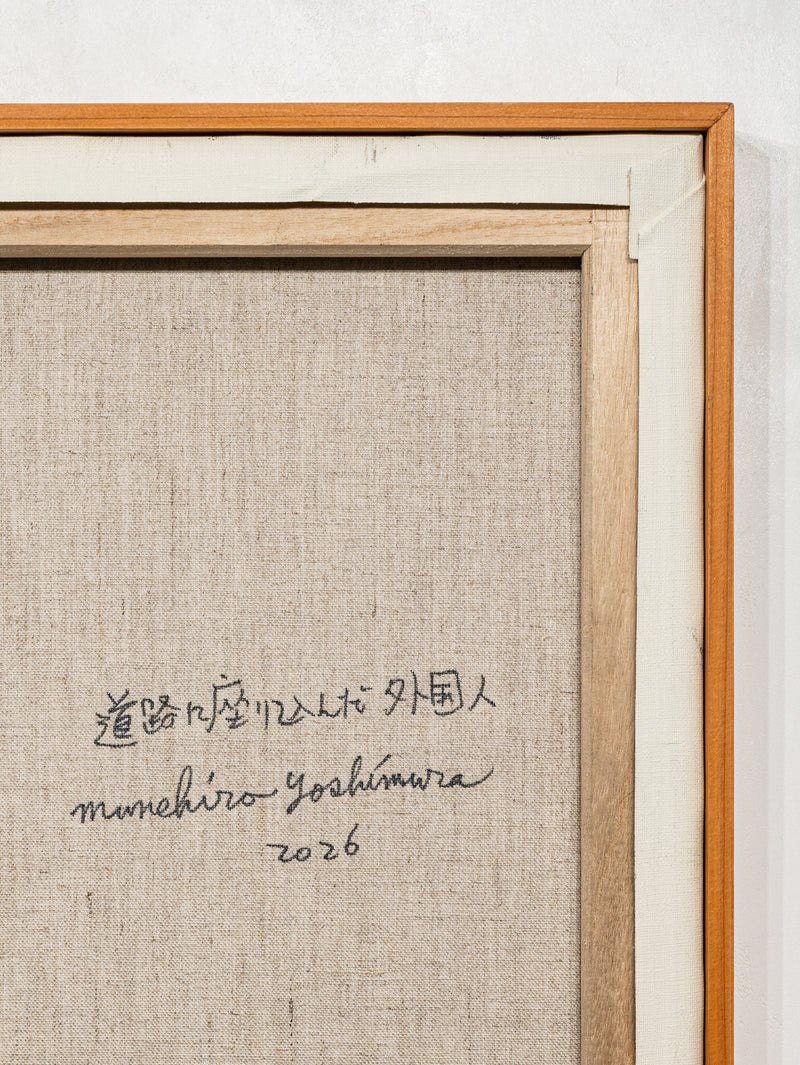 道路に座り込んだ外国人
munehiro yoshimura
2026